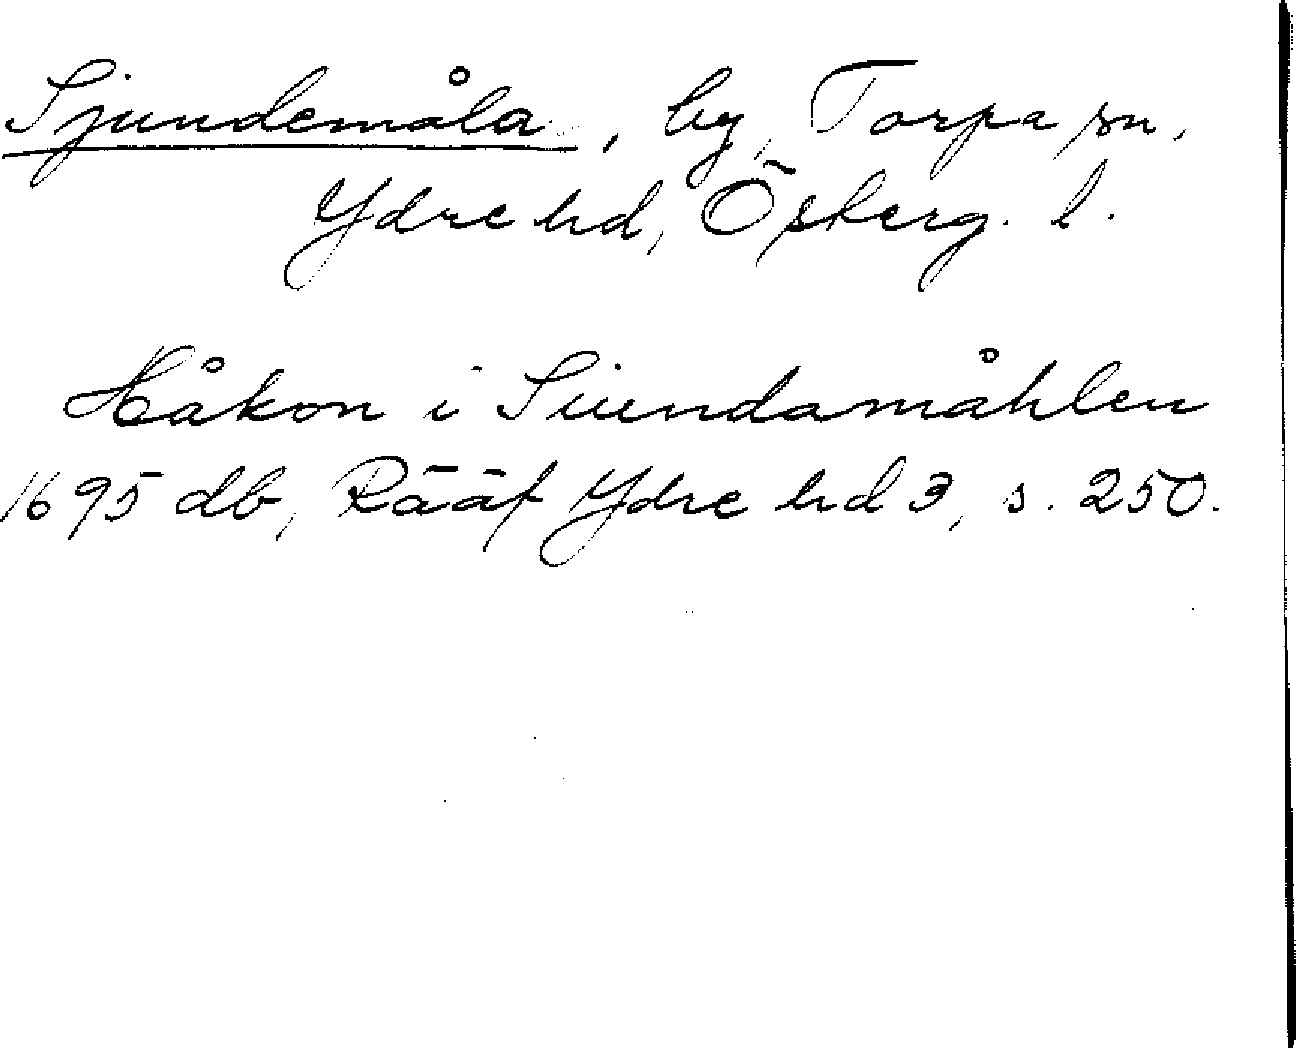 Sjundemåla, by, Torpa sn,
Ydre hd, Österg. l.
Håkon i Siundamåhlen
1695 db, Rääf Ydre hd 3, s. 250.